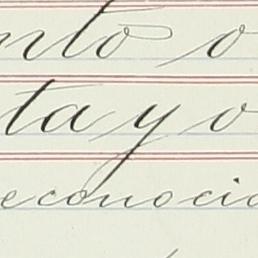 nto o
ta y o
econocid